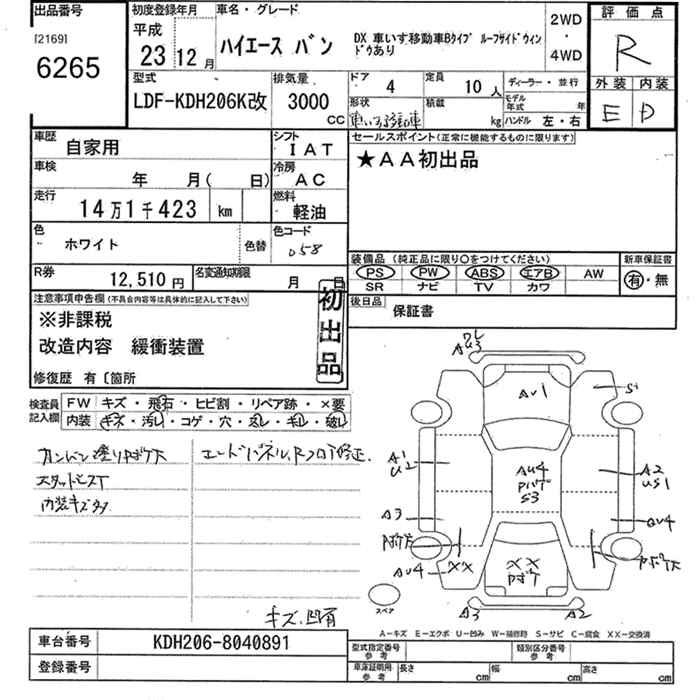 出品番号
[2169]
6265
初度登録年月
平成
23 12月
車名・グレード
ハイエース バン
DX 車いす移動車Bタイプ ルーフサイドウィン
ドウあり
2WD
・
4WD
評価点
R
外装 内装
E D
型式
LDF-KDH206K改
排気量
3000
CC
ドア
4
定員
10 人
ディーラー・並行
形状
車いす移動車
積載
kg
モデル
年式
年
ハンドル 左・右
車歴
自家用
シフト
IAT
車検
年 月( 日)
冷房
AC
走行
14万1千423 km
燃料
軽油
色
ホワイト
色替
色コード
058
R券
12,510円
名変通知期限
月 日
セールスポイント(正常に機能するものに限ります)
★AA初出品
装備品 (純正品に限り○をつけてください)
PS PW ABS エアB AW
SR ナビ TV カワ
新車保証書
有・無
後日品
保証書
注意事項申告欄(不具合内容等は具体的に記入して下さい)
※非課税
改造内容 緩衝装置
修復歴 有〔箇所
初出品
検査員
記入欄
FW キズ・飛石・ヒビ割・リペア跡・×要
内装 キズ・汚レ・コゲ・穴・スレ・キレ・破レ
スタッドレスT
内装キズ多
キズ、凹有
A1
U2
A3
AU4
XX
AU1
S1
AU4
S3
XX
A2
US1
AU4
A3
A2
スペア
A-キズ E-エクボ U-凹み W-補修跡 S-サビ C-腐食 XX-交換済
車台番号
KDH206-8040891
登録番号
型式指定番号
参考
類別区分番号
参考
車庫証明用
参考
長さ cm
幅 cm
高さ cm